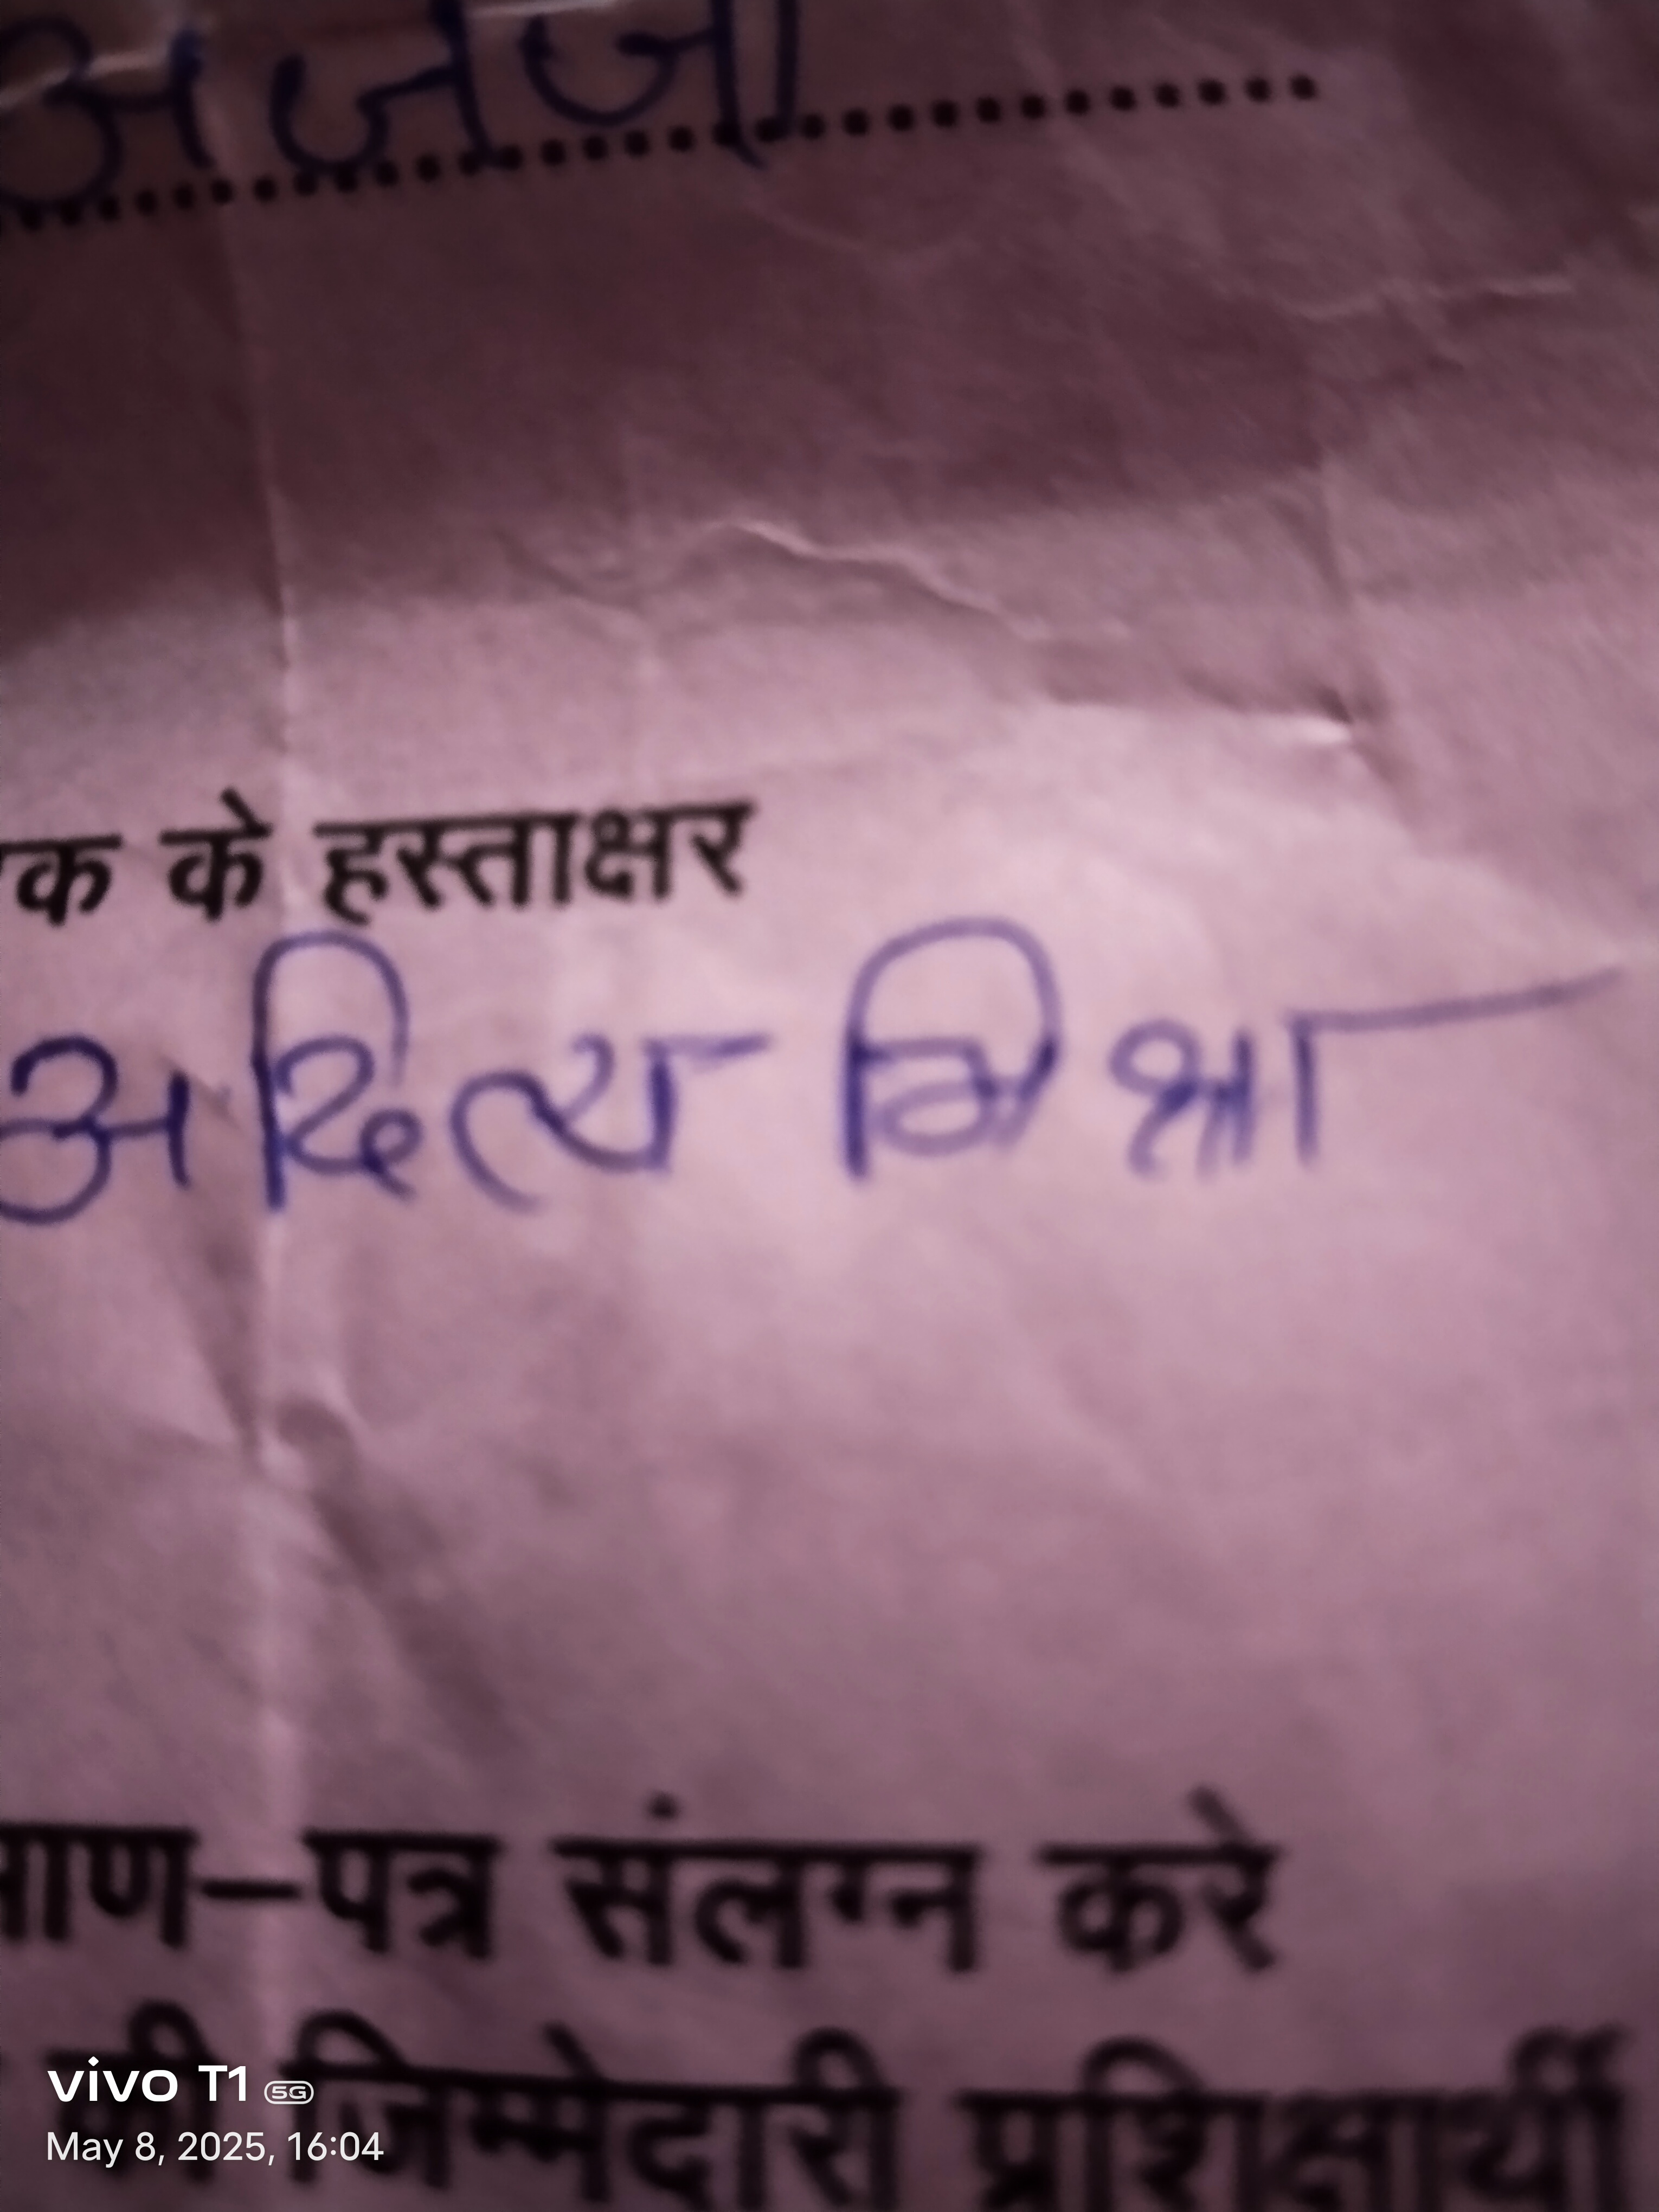 क के हस्ताक्षर
अदित्य मिश्रा
माण–पत्र संलग्न करे
की जिम्मेदारी प्रशिक्षार्थी
vivo T1 5G
May 8, 2025, 16:04